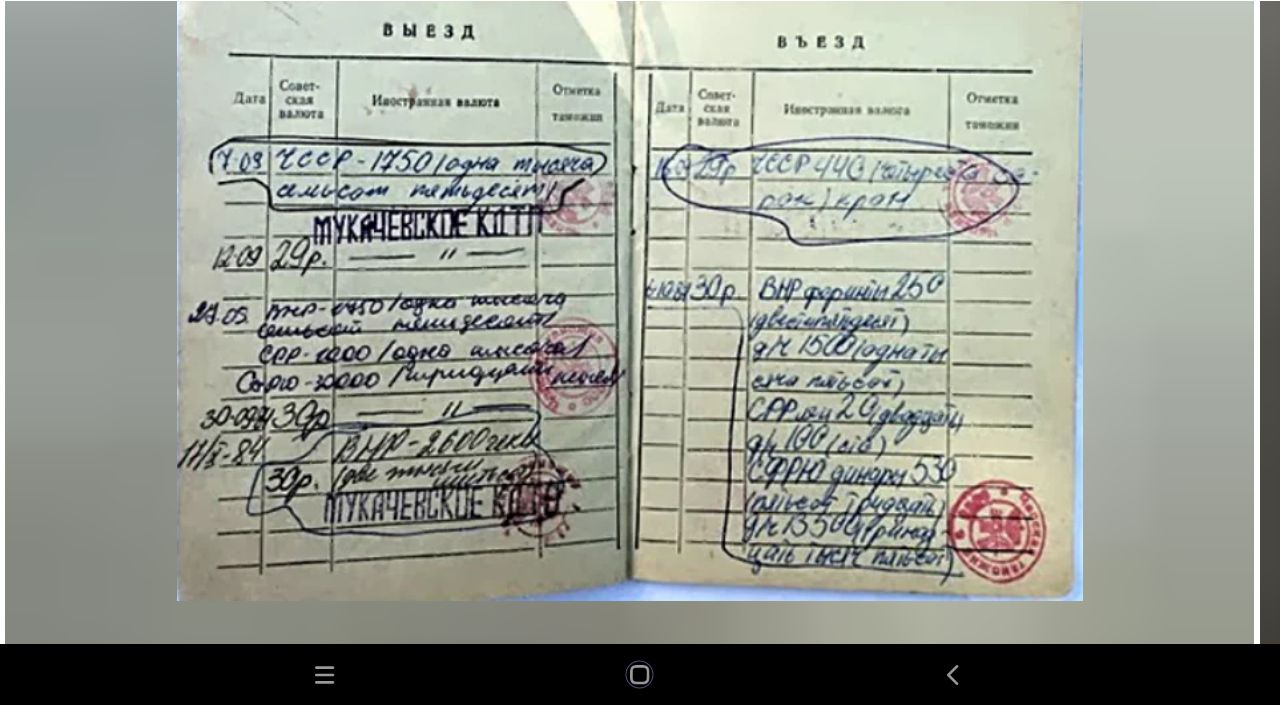 ВЫЕЗД
Дата
Совет-
ская
валюта
Иностранная валюта
Отметка
таможни
7.09 ЧССР - 1750 (одна тысяча)
семьсот пятьдесят)
МУКАЧЕВСКОЕ
12.09 29р. — " —
27.09 1750 (одна тысяча
семьсот пятьдесят)
СРР - (одна тысяча)
30000 (тридцать тысяч)
30р — " —
84 ВНР - 2600
30р. (две тысячи шестьсот)
МУКАЧЕВСКОЕ
ВЪЕЗД
Дата
Совет-
ская
валюта
Иностранная валюта
Отметка
таможни
29р ЧССР 440 (четыреста со-
рок) крон
30р ВНР форинты 250
(двестипятьдесят)
д/ч 1500 (одна ты
сяча пятьсот)
СРР леи 20 (двадцать)
д/ч 100 (сто)
СФРЮ динары 530
(пятьсот тридцать)
д/ч 13500 (тринад-
цать тысяч пятьсот)